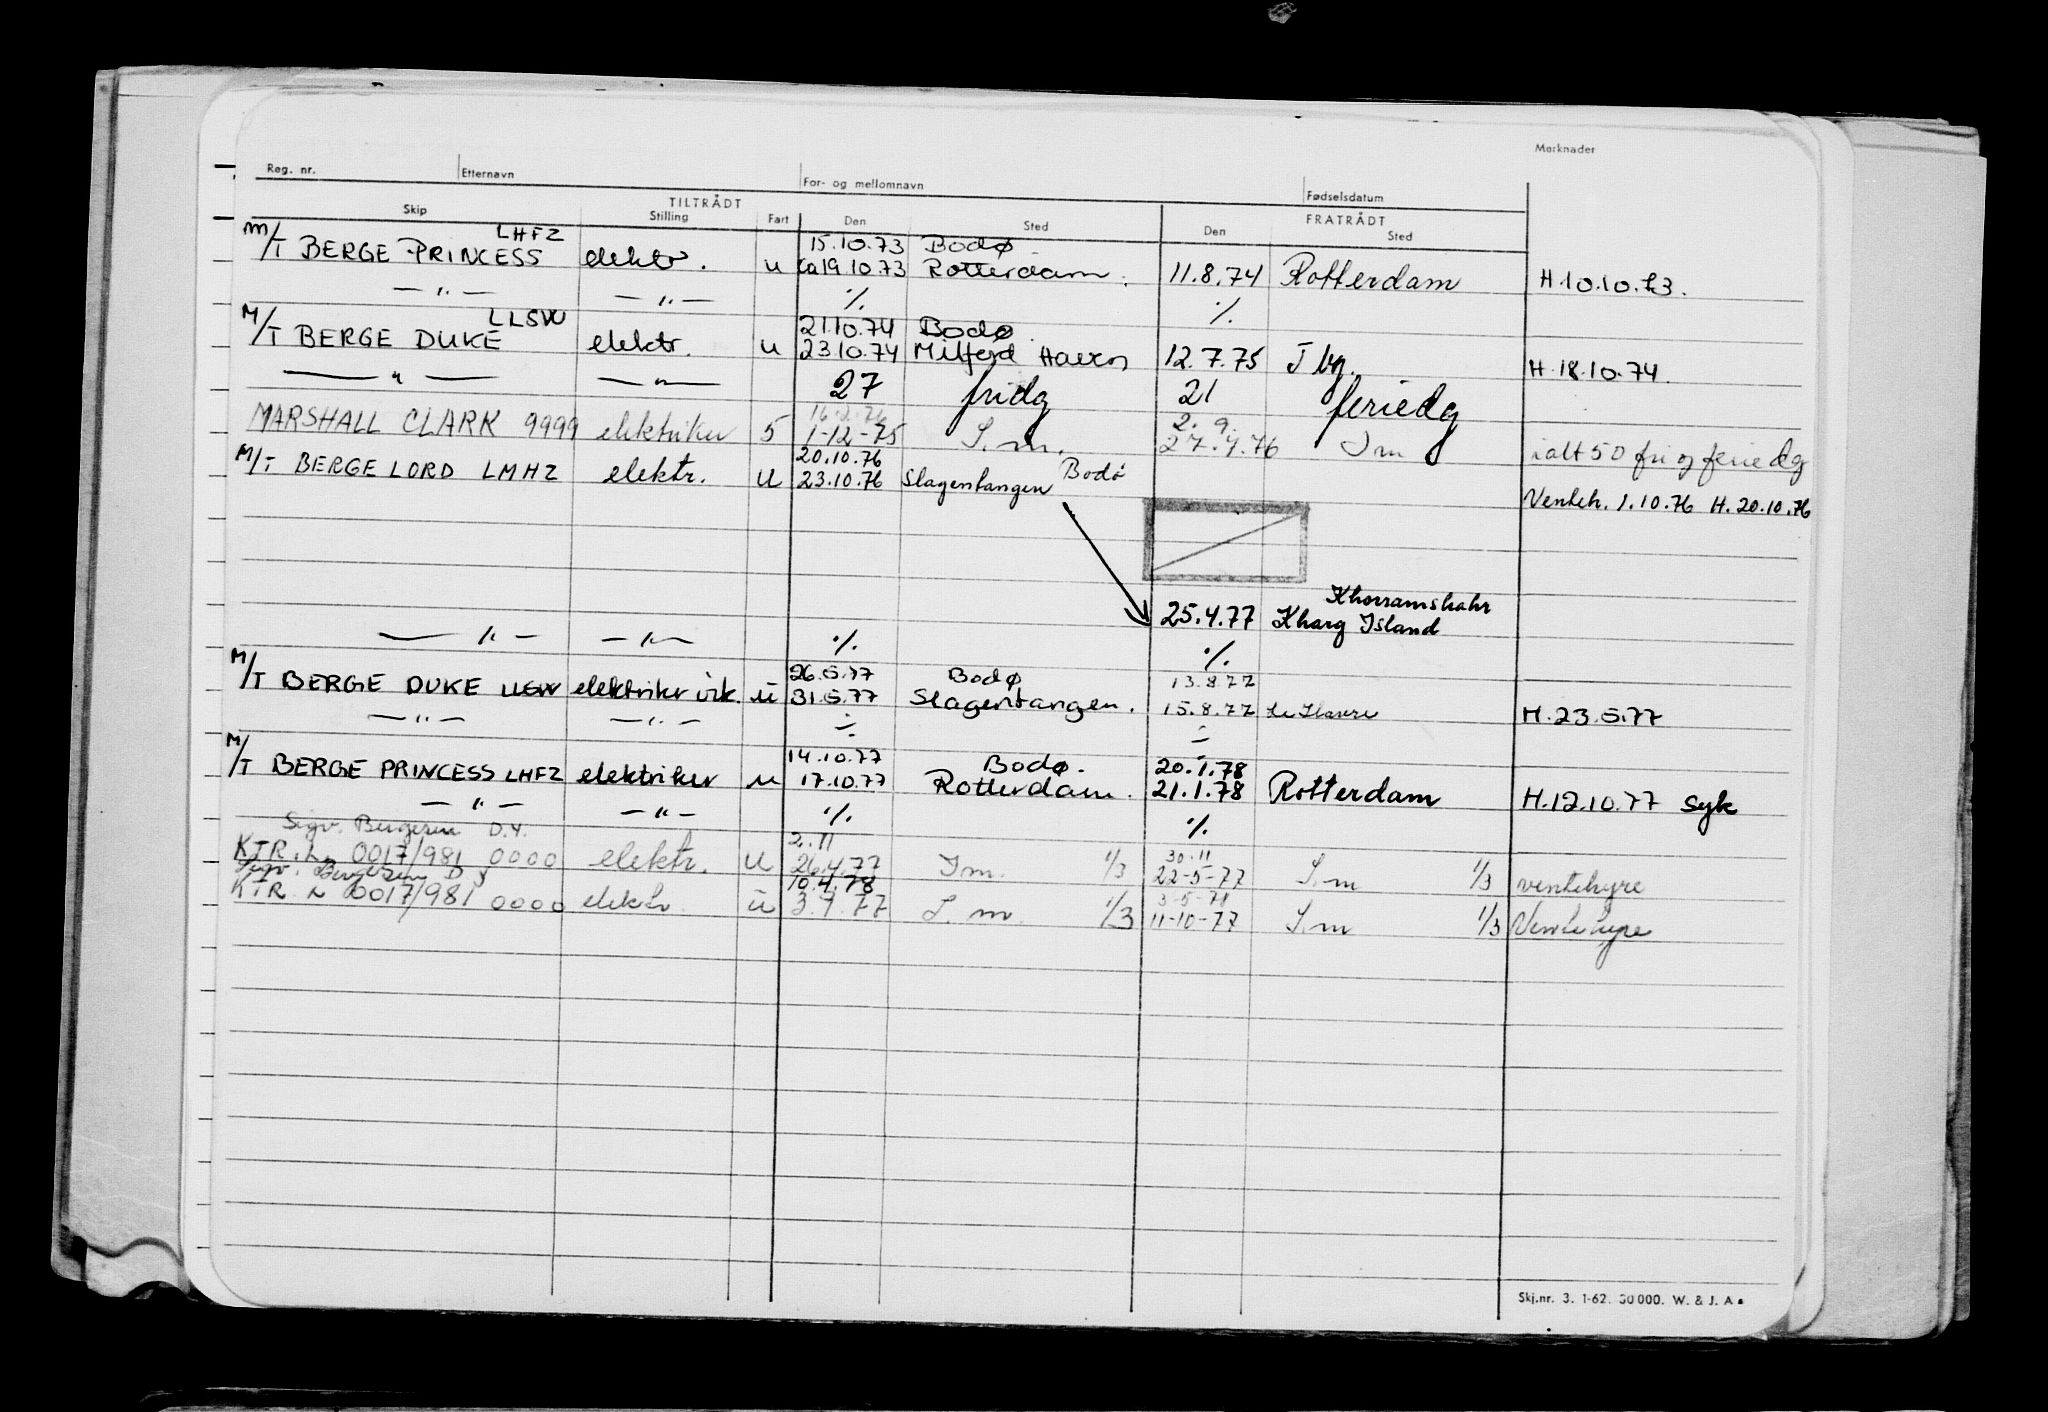 Merknader
Reg. nr. Etternavn For- og mellomnavn Fødselsdatum
TILTRÅDT FRATRÅDT
Skip Stilling Fart Den Sted Den Sted
LHFZ 15.10.73 Bodø
M/T BERGE PRINCESS elektr. u ca 19.10.73 Rotterdam. 11.8.74 Rotterdam H 10.10.73.
— " — — " — % %
LLSW 21.10.74 Bodø
M/T BERGE DUKE elektr. u 23.10.74 Milford Haven 12.7.75 H. 18.10.74.
— " — — " — 27 fridg 21 feriedg
16.2.76 2. 9.
MARSHALL CLARK 9999 elektriker 5 1-12-75 S.m. 27.4.76 S m ialt 50 fri og feriedg
20.10.76 Bodø
M/T BERGE LORD LMHZ elektr. u 23.10.76 Slagentangen
Venteh. 1.10.76 H. 20.10.76
Khorramshahr
25.4.77 Kharg Island
— " — — " — % %
26.5.77 Bodø 13.8.77
M/T BERGE DUKE LLSW elektriker u 31.5.77 Slagentangen. 15.8.77 Le Havre H. 23.5.77
— " — — " — ÷ ÷
14.10.77 Bodø. 20.1.78
M/T BERGE PRINCESS LHFZ elektriker u 17.10.77 Rotterdam. 21.1.78 Rotterdam H. 12.10.77 syk
— " — — " — % %
Sigv. Bergesen D.Y. 2.11 30.11
KTR. L. 0017/981 0000 elektr. u 26.4.77 S m. 1/3 22-5-77 S.m 1/3 ventehyre
Sigv. Bergesen D Y 10.4.78 3-5-78
KTR L 0017/981 0000 elektr. u 77 S. m. 1/3 11-10-77 S.m 1/3 Ventehyre
Skj.nr. 3. 1-62. 30 000. W. & J. A.